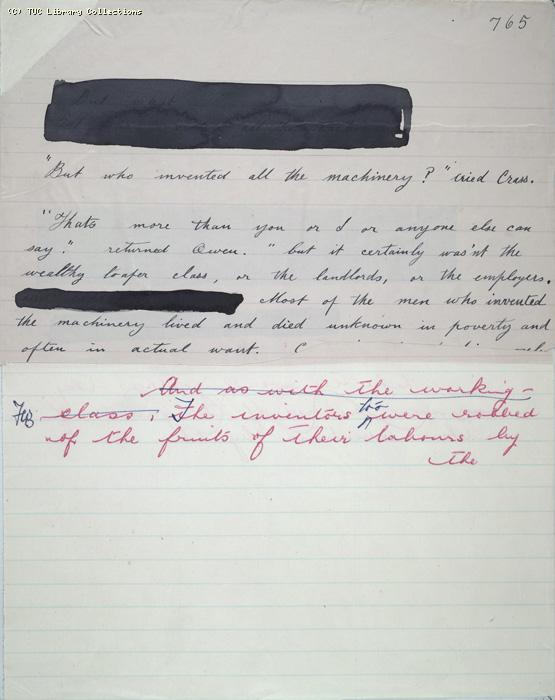 (C) TUC Library Collections
765
"But who invented all the machinery?" cried Crass.
"Thats more than you or I or anyone else can
say." returned Owen. "but it certainly was'nt the
wealthy loafer class, or the landlords, or the employers.
Most of the men who invented
the machinery lived and died unknown in poverty and
often in actual want.
And as with the working-
class, The inventors too were robbed
of the fruits of their labours by
the